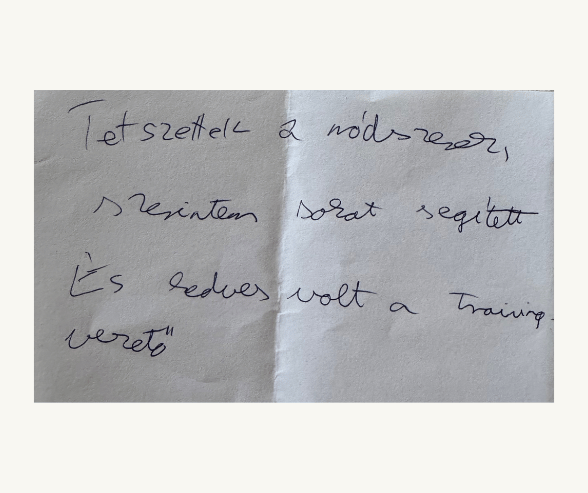 Tetszettek a módszerek,
szerintem sokat segített
És kedves volt a Training-
vezető